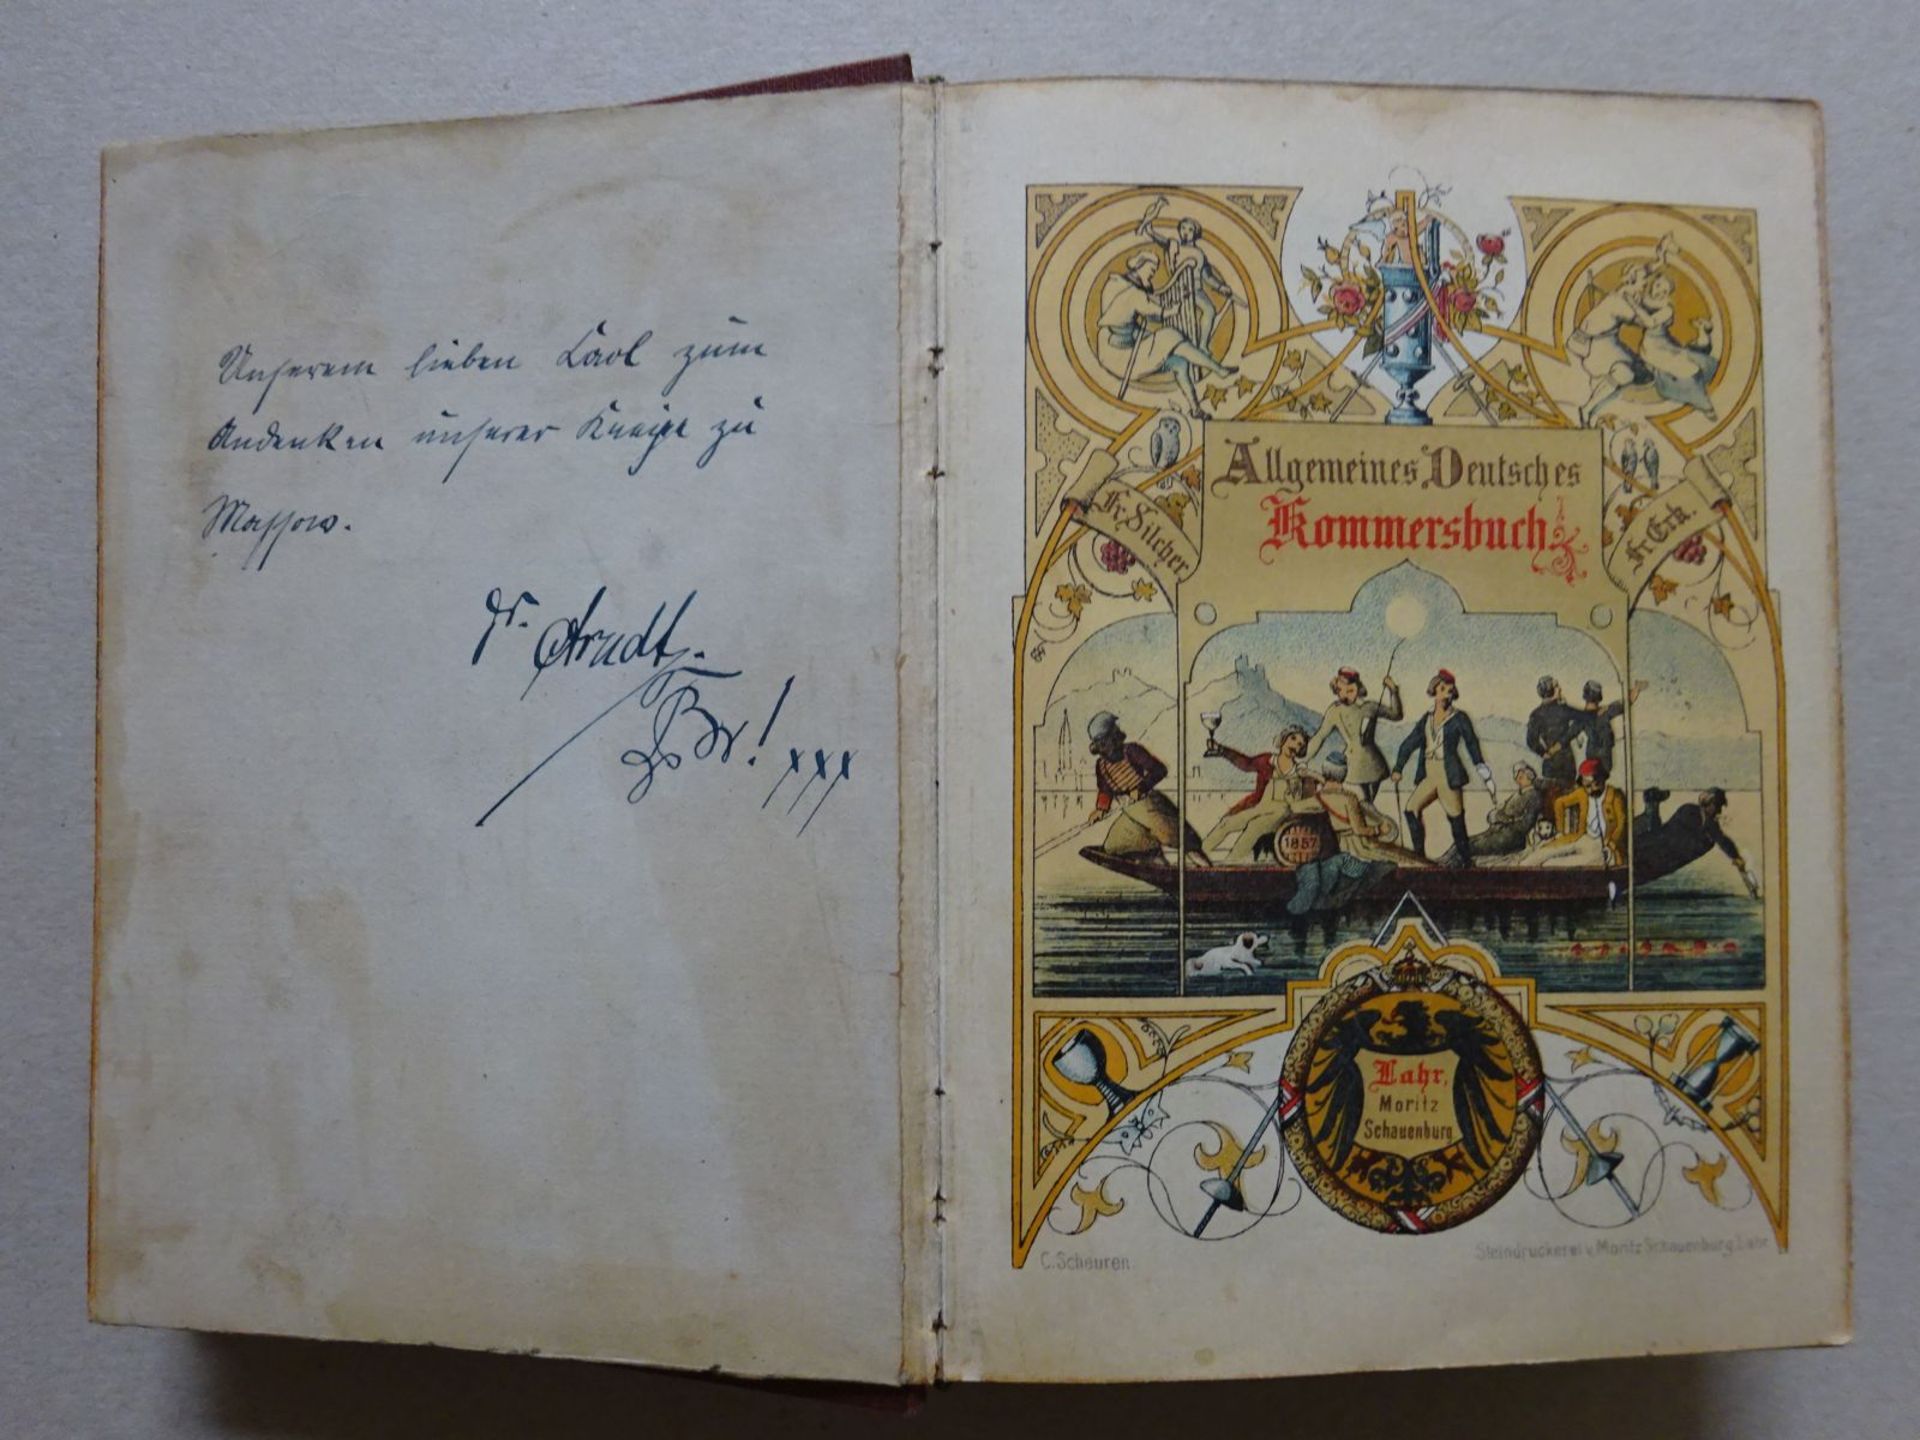 Unserem lieben Karl zum
Andenken unserer Kneipe zu
Massow.
Dr. Arndt.
Br! xxx
Allgemeines Deutsches
Kommersbuch
Fr. Silcher
Fr. Erk.
1857
Lahr,
Moritz
Schauenburg
C. Scheuren
Steindruckerei v. Moritz Schauenburg Lahr